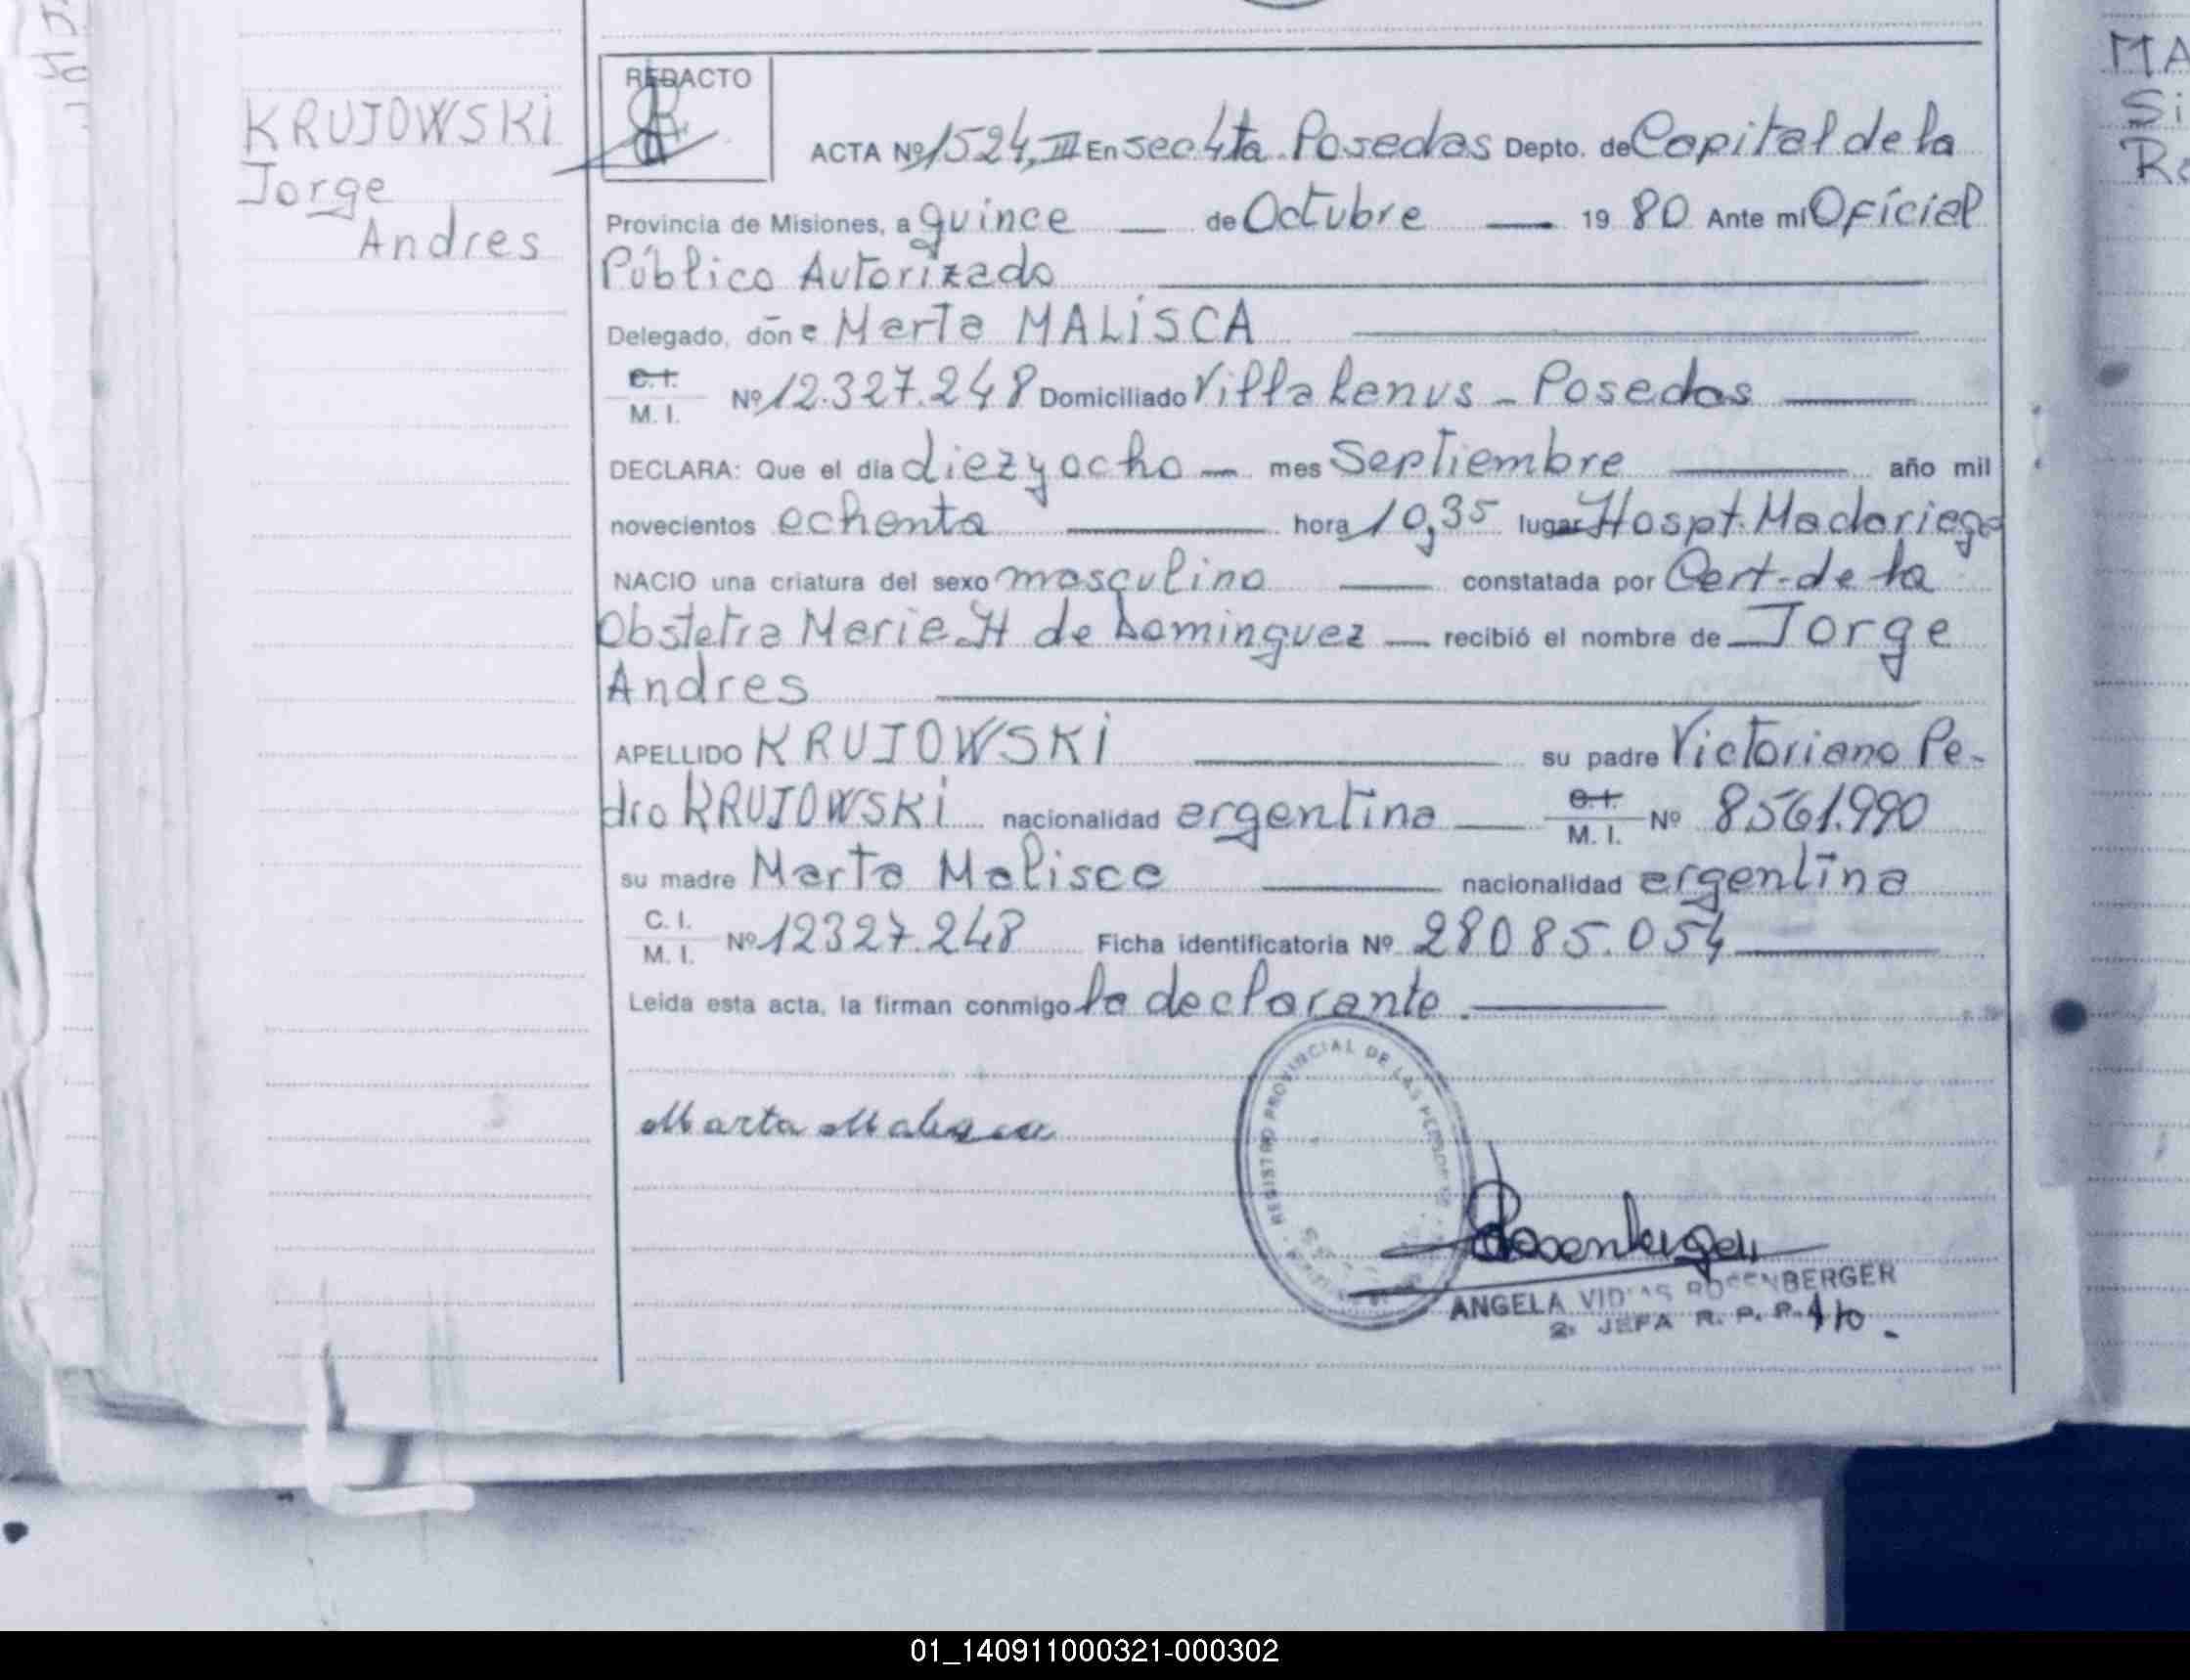 KRUJOWSKI
Jorge
Andres
REDACTO
ACTA Nº 1524, III En sec 4ta. Posadas Depto. de Capital de la
Provincia de Misiones, a quince — de Octubre — 19 80 Ante mí Oficial
Público Autorizado
Delegado, dōn a Marta MALISCA
C. I.
M. I. Nº 12.327.248 Domiciliado Villa Lanus - Posadas
DECLARA: Que el día diezyocho — mes Septiembre — año mil
novecientos ochenta — hora 10,35 lugar Hospt. Madariaga
NACIO una criatura del sexo masculino — constatada por Cert. de la
Obstetra Maria H de Dominguez — recibió el nombre de — Jorge
Andres
APELLIDO KRUJOWSKI — su padre Victoriano Pe-
dro KRUJOWSKI nacionalidad argentina — C. I. / M. I. Nº 8561.990
su madre Marta Malisca — nacionalidad argentina
C. I.
M. I. Nº 12327.248 Ficha identificatoria Nº 28085.054
Leída esta acta, la firman conmigo la declarante.
Marta Malisca
REGISTRO PROVINCIAL DE LAS PERSONAS
Rosenberger
ANGELA VIDAS ROSENBERGER
2ª JEFA R. P. P.
MA
Si
Ro
01_140911000321-000302